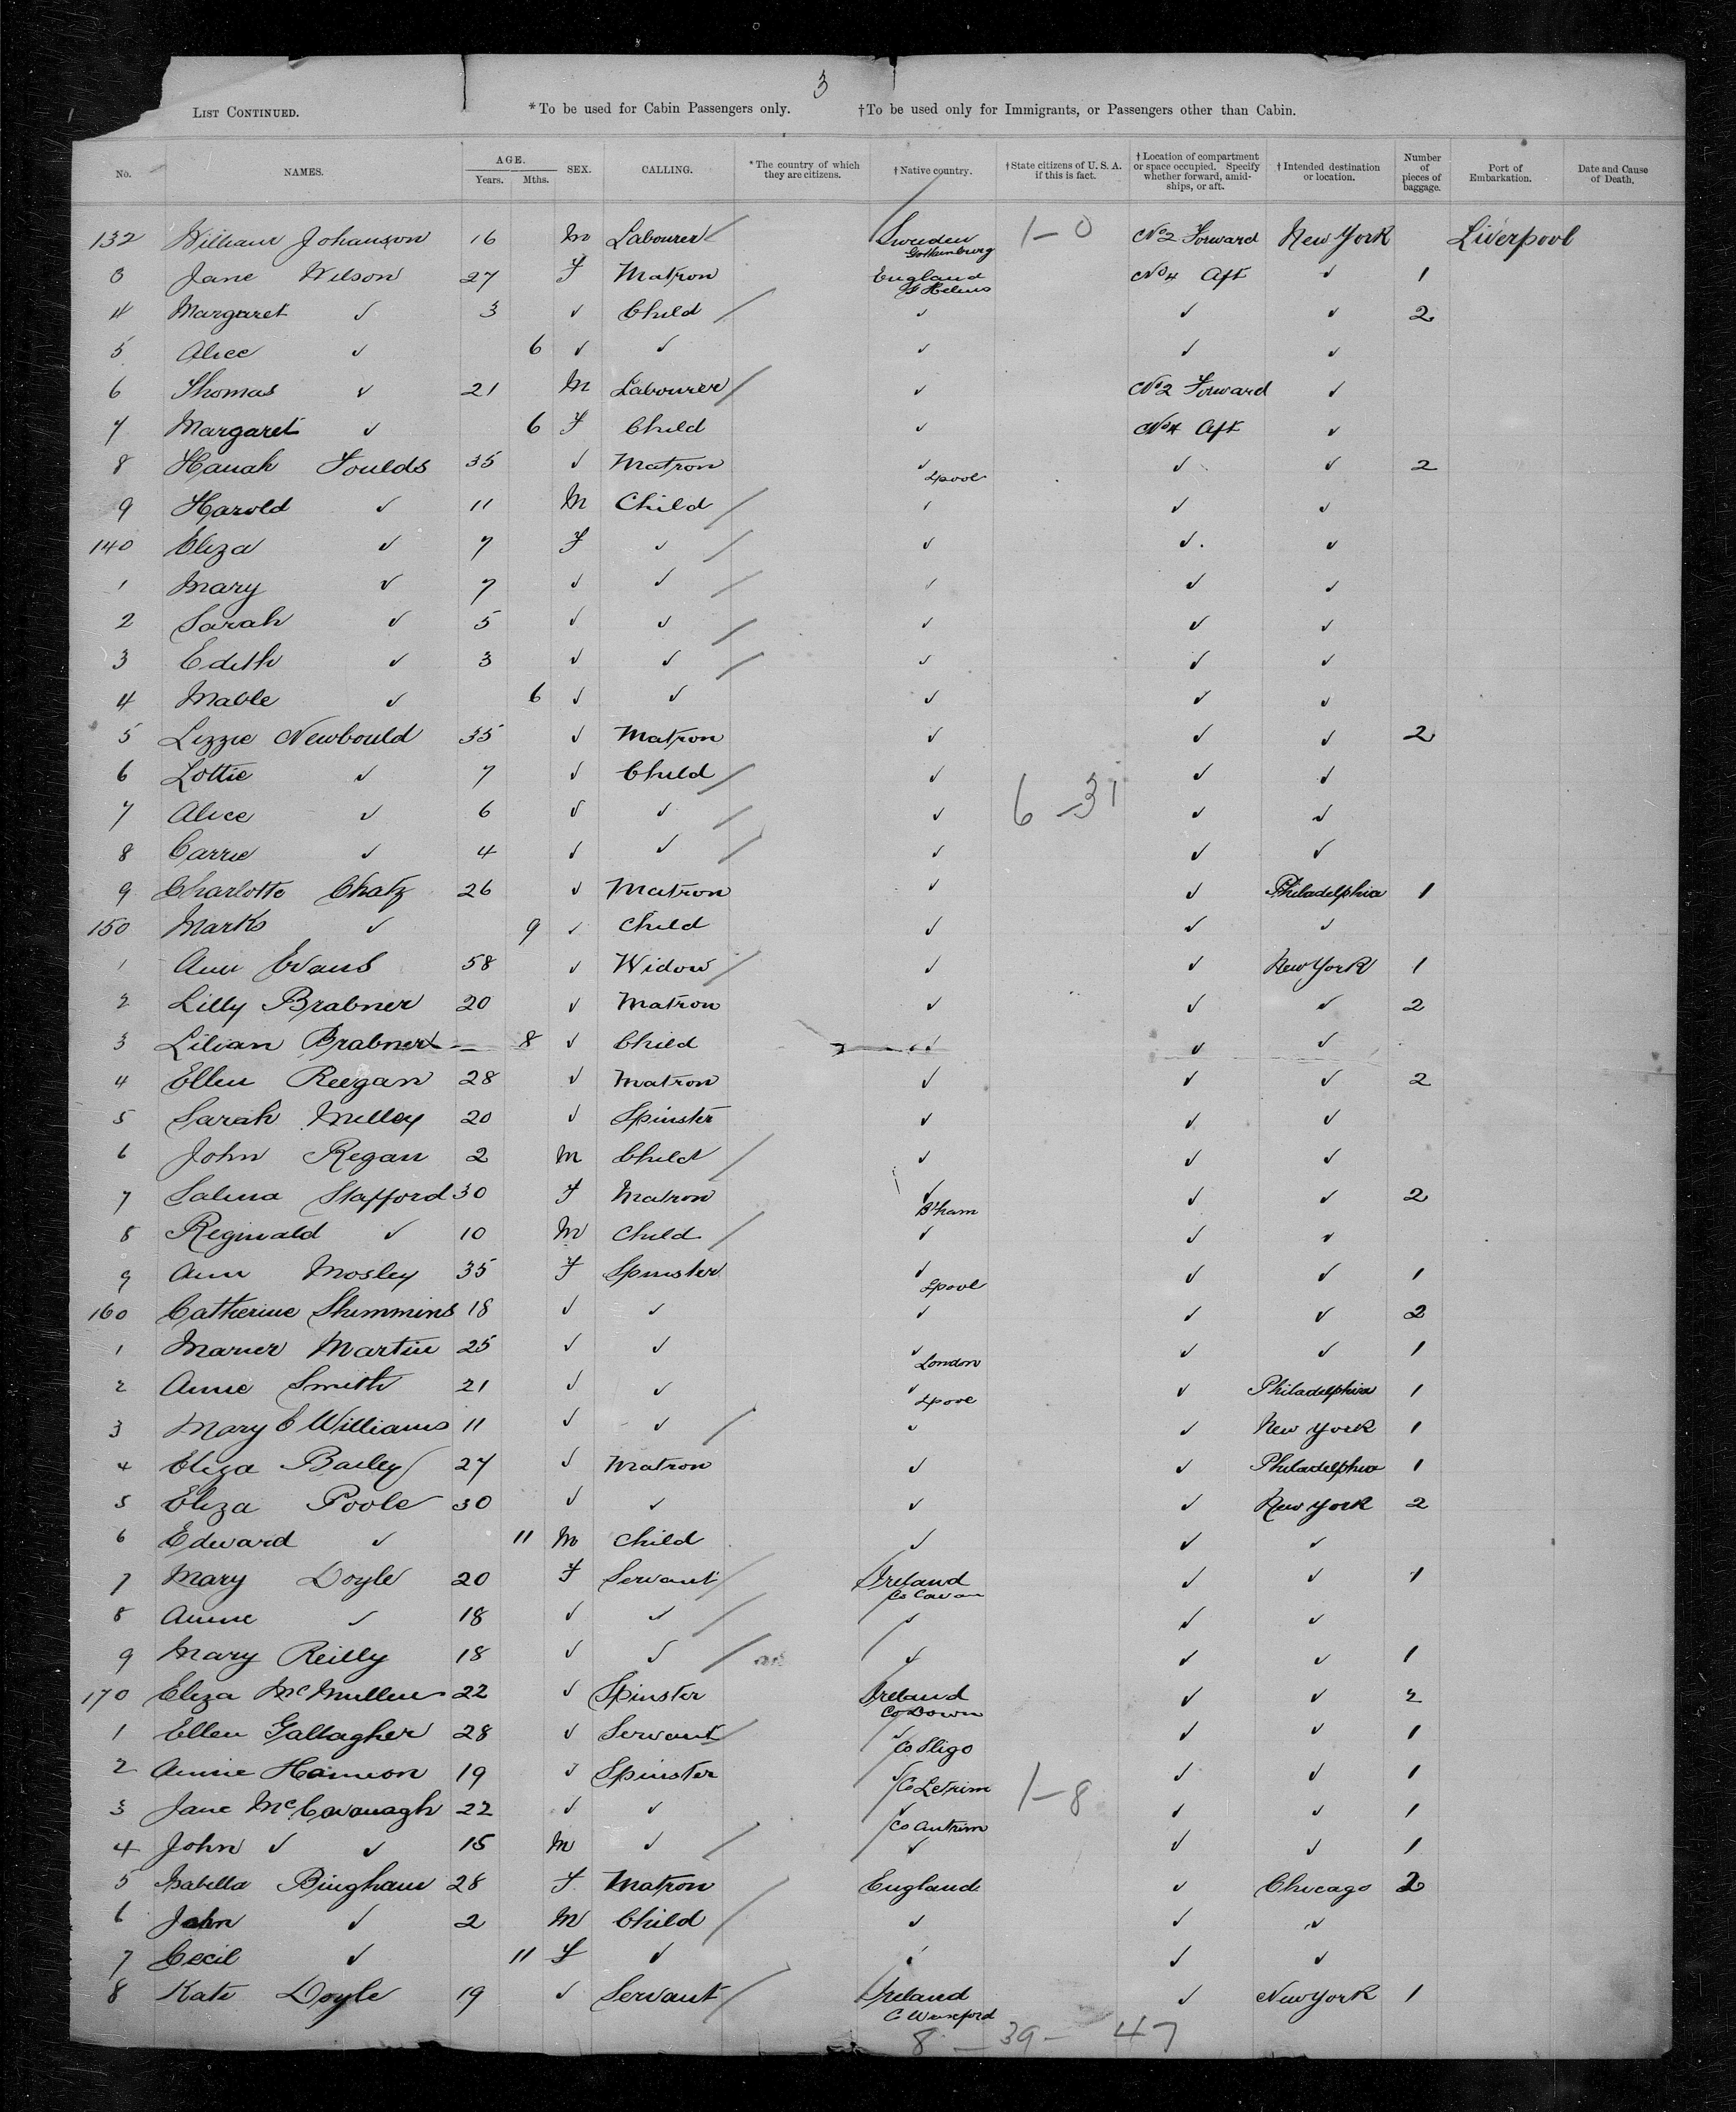 3
LIST CONTINUED. *To be used for Cabin Passengers only. †To be used only for Immigrants, or Passengers other than Cabin.
No. NAMES. AGE. Years. Mths. SEX. CALLING. *The country of which they are citizens. †Native country. †State citizens of U. S. A. if this is fact. †Location of compartment or space occupied. Specify whether forward, amidships, or aft. †Intended destination or location. Number of pieces of baggage. Port of Embarkation. Date and Cause of Death.
132 William Johanson 16 M Labourer Sweden Gothenburg 1-0 No 2 Forward New York Liverpool
3 Jane Wilson 27 F Matron England St Helens No 4 Aft ✓ 1
4 Margaret ✓ 3 ✓ Child ✓ ✓ ✓ 2
5 Alice ✓ 6 ✓ ✓ ✓ ✓ ✓
6 Thomas ✓ 21 M Labourer ✓ No 2 Forward ✓
7 Margaret ✓ 6 F Child ✓ No 4 Aft ✓
8 Hanah Foulds 35 ✓ Matron ✓ Lpool ✓ ✓ 2
9 Harold ✓ 11 M Child ✓ ✓ ✓
140 Eliza ✓ 7 F ✓ ✓ ✓ ✓
1 Mary ✓ 7 ✓ ✓ ✓ ✓ ✓
2 Sarah ✓ 5 ✓ ✓ ✓ ✓ ✓
3 Edith ✓ 3 ✓ ✓ ✓ ✓ ✓
4 Mable ✓ 6 ✓ ✓ ✓ ✓ ✓
5 Lizzie Newbould 35 ✓ Matron ✓ ✓ ✓ 2
6 Lottie ✓ 7 ✓ Child ✓ ✓ ✓
7 Alice ✓ 6 ✓ ✓ ✓ 6-31 ✓ ✓
8 Carrie ✓ 4 ✓ ✓ ✓ ✓ ✓
9 Charlotte Chatz 26 ✓ Matron ✓ ✓ Philadelphia 1
150 Marks ✓ 9 ✓ Child ✓ ✓ ✓
1 Ann Evans 58 ✓ Widow ✓ ✓ New York 1
2 Lilly Brabner 20 ✓ Matron ✓ ✓ ✓ 2
3 Lilian Brabner — 8 ✓ Child ✓ ✓ ✓
4 Ellen Reegan 28 ✓ Matron ✓ ✓ ✓ 2
5 Sarah Milley 20 ✓ Spinster ✓ ✓ ✓
6 John Regan 2 M Child ✓ ✓ ✓
7 Salina Stafford 30 F Matron ✓ B'ham ✓ ✓ 2
8 Reginald ✓ 10 M Child ✓ ✓ ✓
9 Ann Mosley 35 F Spinster ✓ Lpool ✓ ✓ 1
160 Catherine Shimmins 18 ✓ ✓ ✓ ✓ ✓ 2
1 Martin 25 ✓ ✓ ✓ London ✓ ✓ 1
2 Annie Smith 21 ✓ ✓ ✓ Lpool ✓ Philadelphia 1
3 Mary E Williams 11 ✓ ✓ ✓ ✓ New York 1
4 Eliza Bailey 27 ✓ Matron ✓ ✓ Philadelphia 1
5 Eliza Poole 30 ✓ ✓ ✓ ✓ New York 2
6 Edward ✓ 11 M Child ✓ ✓ ✓
7 Mary Doyle 20 F Servant Ireland Co Cavan ✓ ✓ 1
8 Annie ✓ 18 ✓ ✓ ✓ ✓ ✓
9 Mary Reilly 18 ✓ ✓ ✓ ✓ ✓ 1
170 Eliza McMullen 22 ✓ Spinster Ireland Co Down ✓ ✓ 2
1 Ellen Gallagher 28 ✓ Servant ✓ Co Sligo ✓ ✓ 1
2 Annie Hameon 19 ✓ Spinster ✓ Co Letrim 1-8 ✓ ✓ 1
3 Jane McCavanagh 22 ✓ ✓ ✓ Co Antrim ✓ ✓ 1
4 John ✓ ✓ 15 M ✓ ✓ ✓ ✓ 1
5 Isabella Bingham 28 F Matron England ✓ Chicago 2
6 John ✓ 2 M Child ✓ ✓ ✓
7 Cecil ✓ 11 F ✓ ✓ ✓ ✓
8 Kate Doyle 19 ✓ Servant Ireland C Wexford ✓ New York 1
8 - 39 - 47